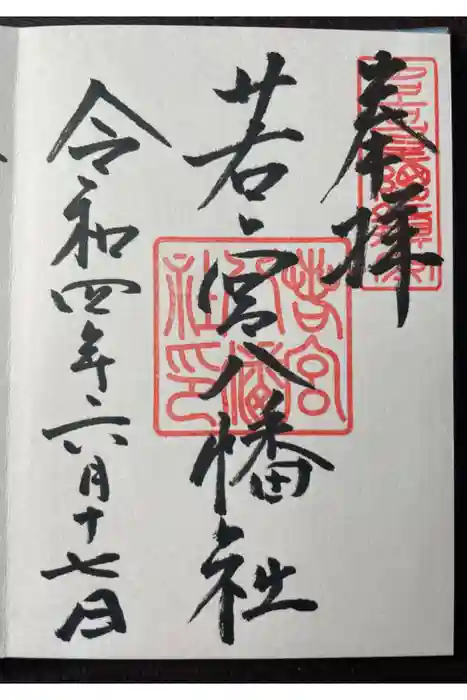 奉拝
若宮八幡社
令和四年六月十七日
若宮八幡社印